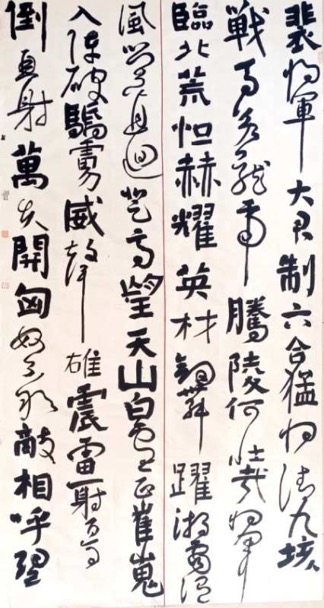 裴将軍大君制六合猛将清九垓
戦馬若龍虎騰陵何壯哉将軍
臨北荒恒赫耀英材劔舞躍游電随
風縈且迴登高望天山白雲正崔嵬
入陣破驕虜威聲雄震雷一射百馬
倒再射萬夫開匈奴不敢敵相呼